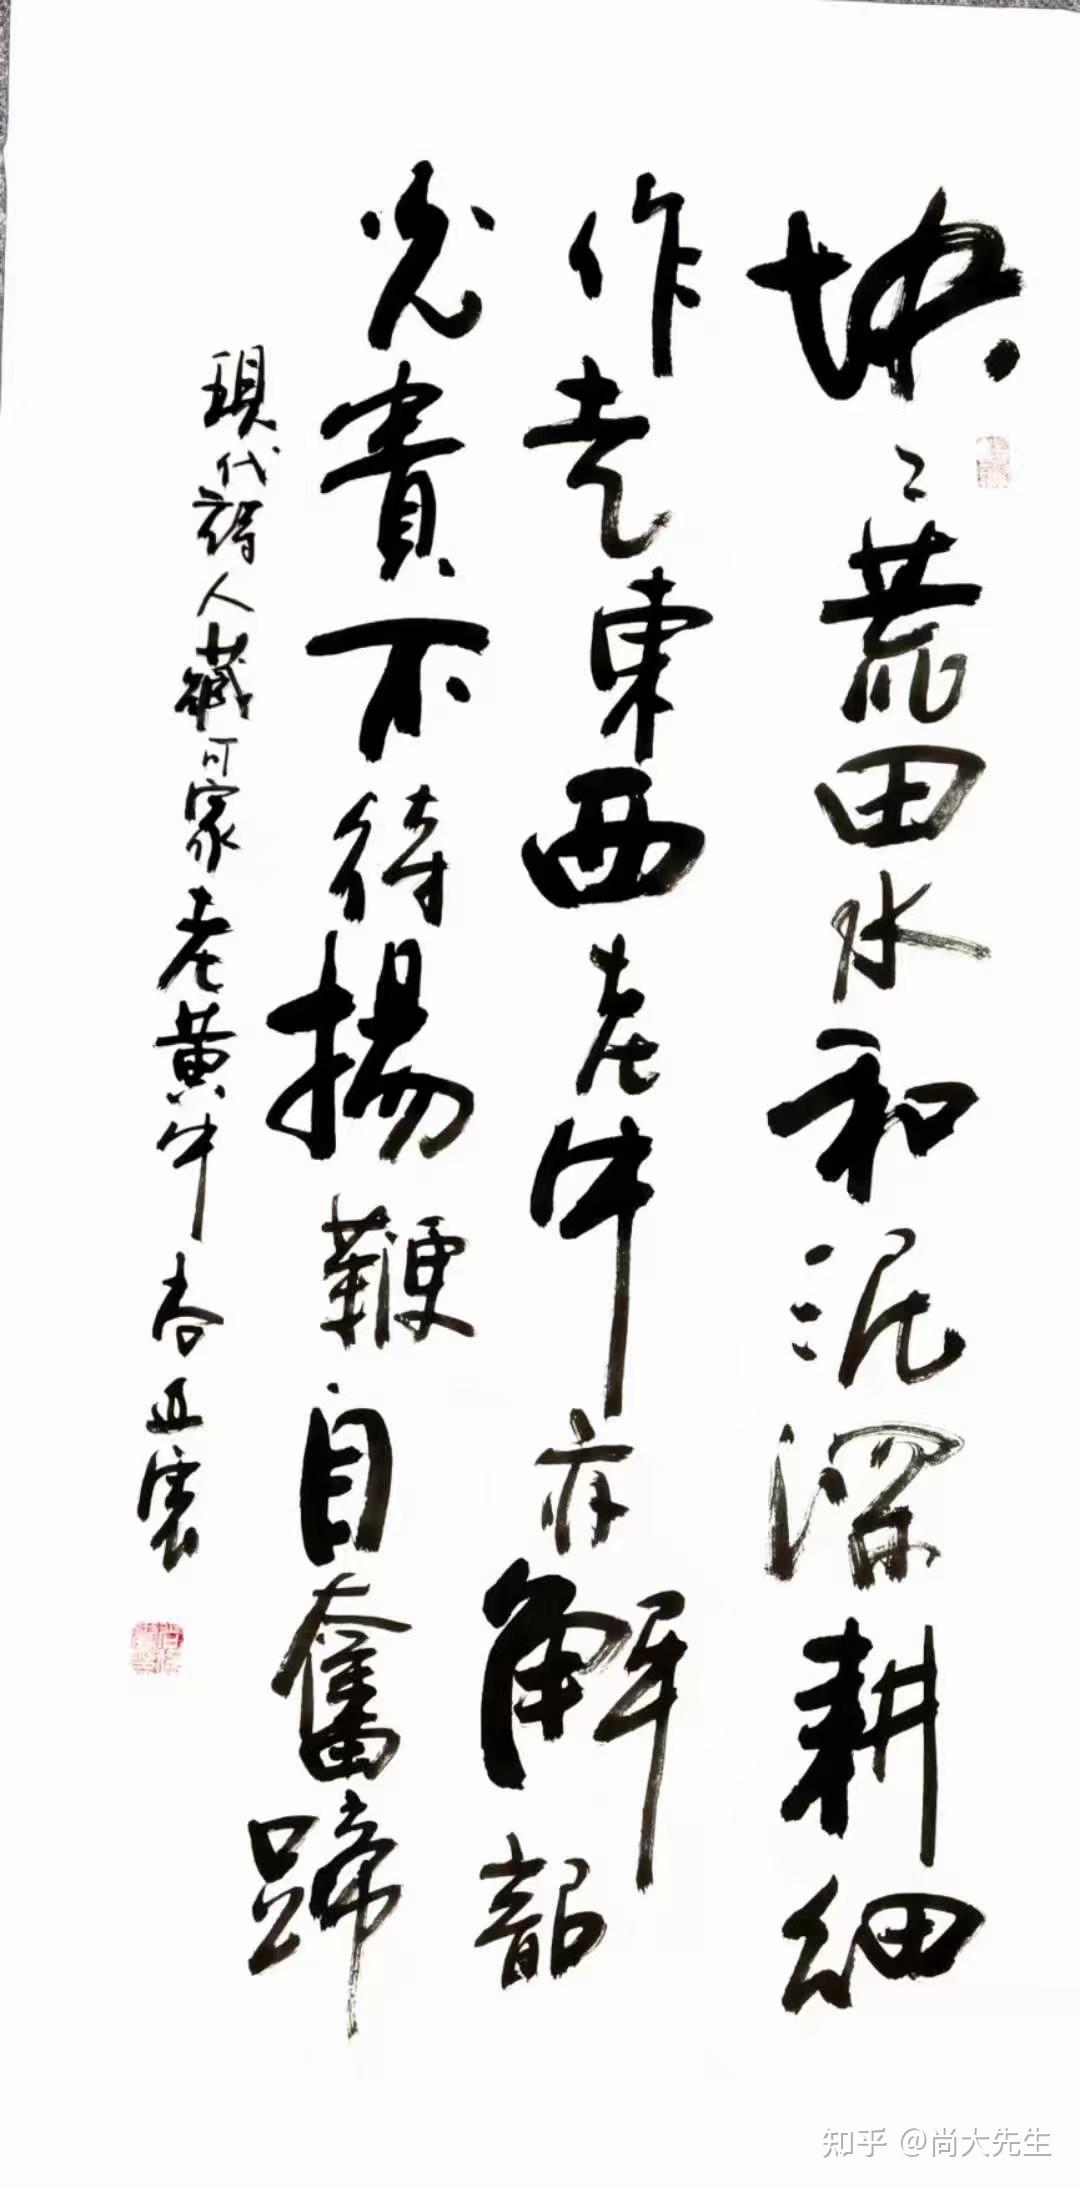 块〻荒田水和泥深耕细
作走东西老牛亦解韶
光贵不待扬鞭自奋蹄
现代诗人臧可家老黄牛春亚云
知乎 @尚大先生